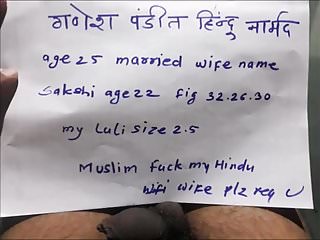 गणेश पंडीत हिन्दु नार्मद
age 25 married wife name
Sakshi age 22 fig 32.26.30
my Luli size 2.5
Muslim fuck my Hindu
wife plz req